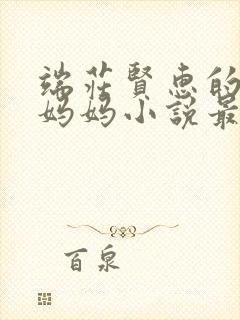 端莊賢惠的
媽媽小說最
百泉